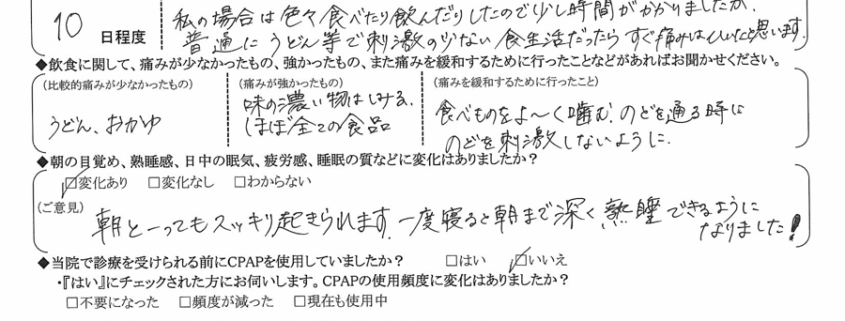 10 日程度
私の場合は色々食べたり飲んだりしたので少し時間がかかりましたが、
普通にうどん等で刺激の少ない食生活だったらすぐ痛みはないと思います
◆飲食に関して、痛みが少なかったもの、強かったもの、また痛みを緩和するために行ったことなどがあればお聞かせください。
(比較的痛みが少なかったもの) (痛みが強かったもの) (痛みを緩和するために行ったこと)
うどん、おかゆ
味の濃い物はしみる、
ほぼ全ての食品
食べものをよ〜く噛む、のどを通る時に
のどを刺激しないように.
◆朝の目覚め、熟睡感、日中の眠気、疲労感、睡眠の質などに変化はありましたか?
☑変化あり □変化なし □わからない
(ご意見)
朝と一ってもスッキリ起きられます。一度寝ると朝まで深く熟睡できるように
なりました!
◆当院で診療を受けられる前にCPAPを使用していましたか? □はい ☑いいえ
・『はい』にチェックされた方にお伺いします。CPAPの使用頻度に変化はありましたか?
□不要になった □頻度が減った □現在も使用中